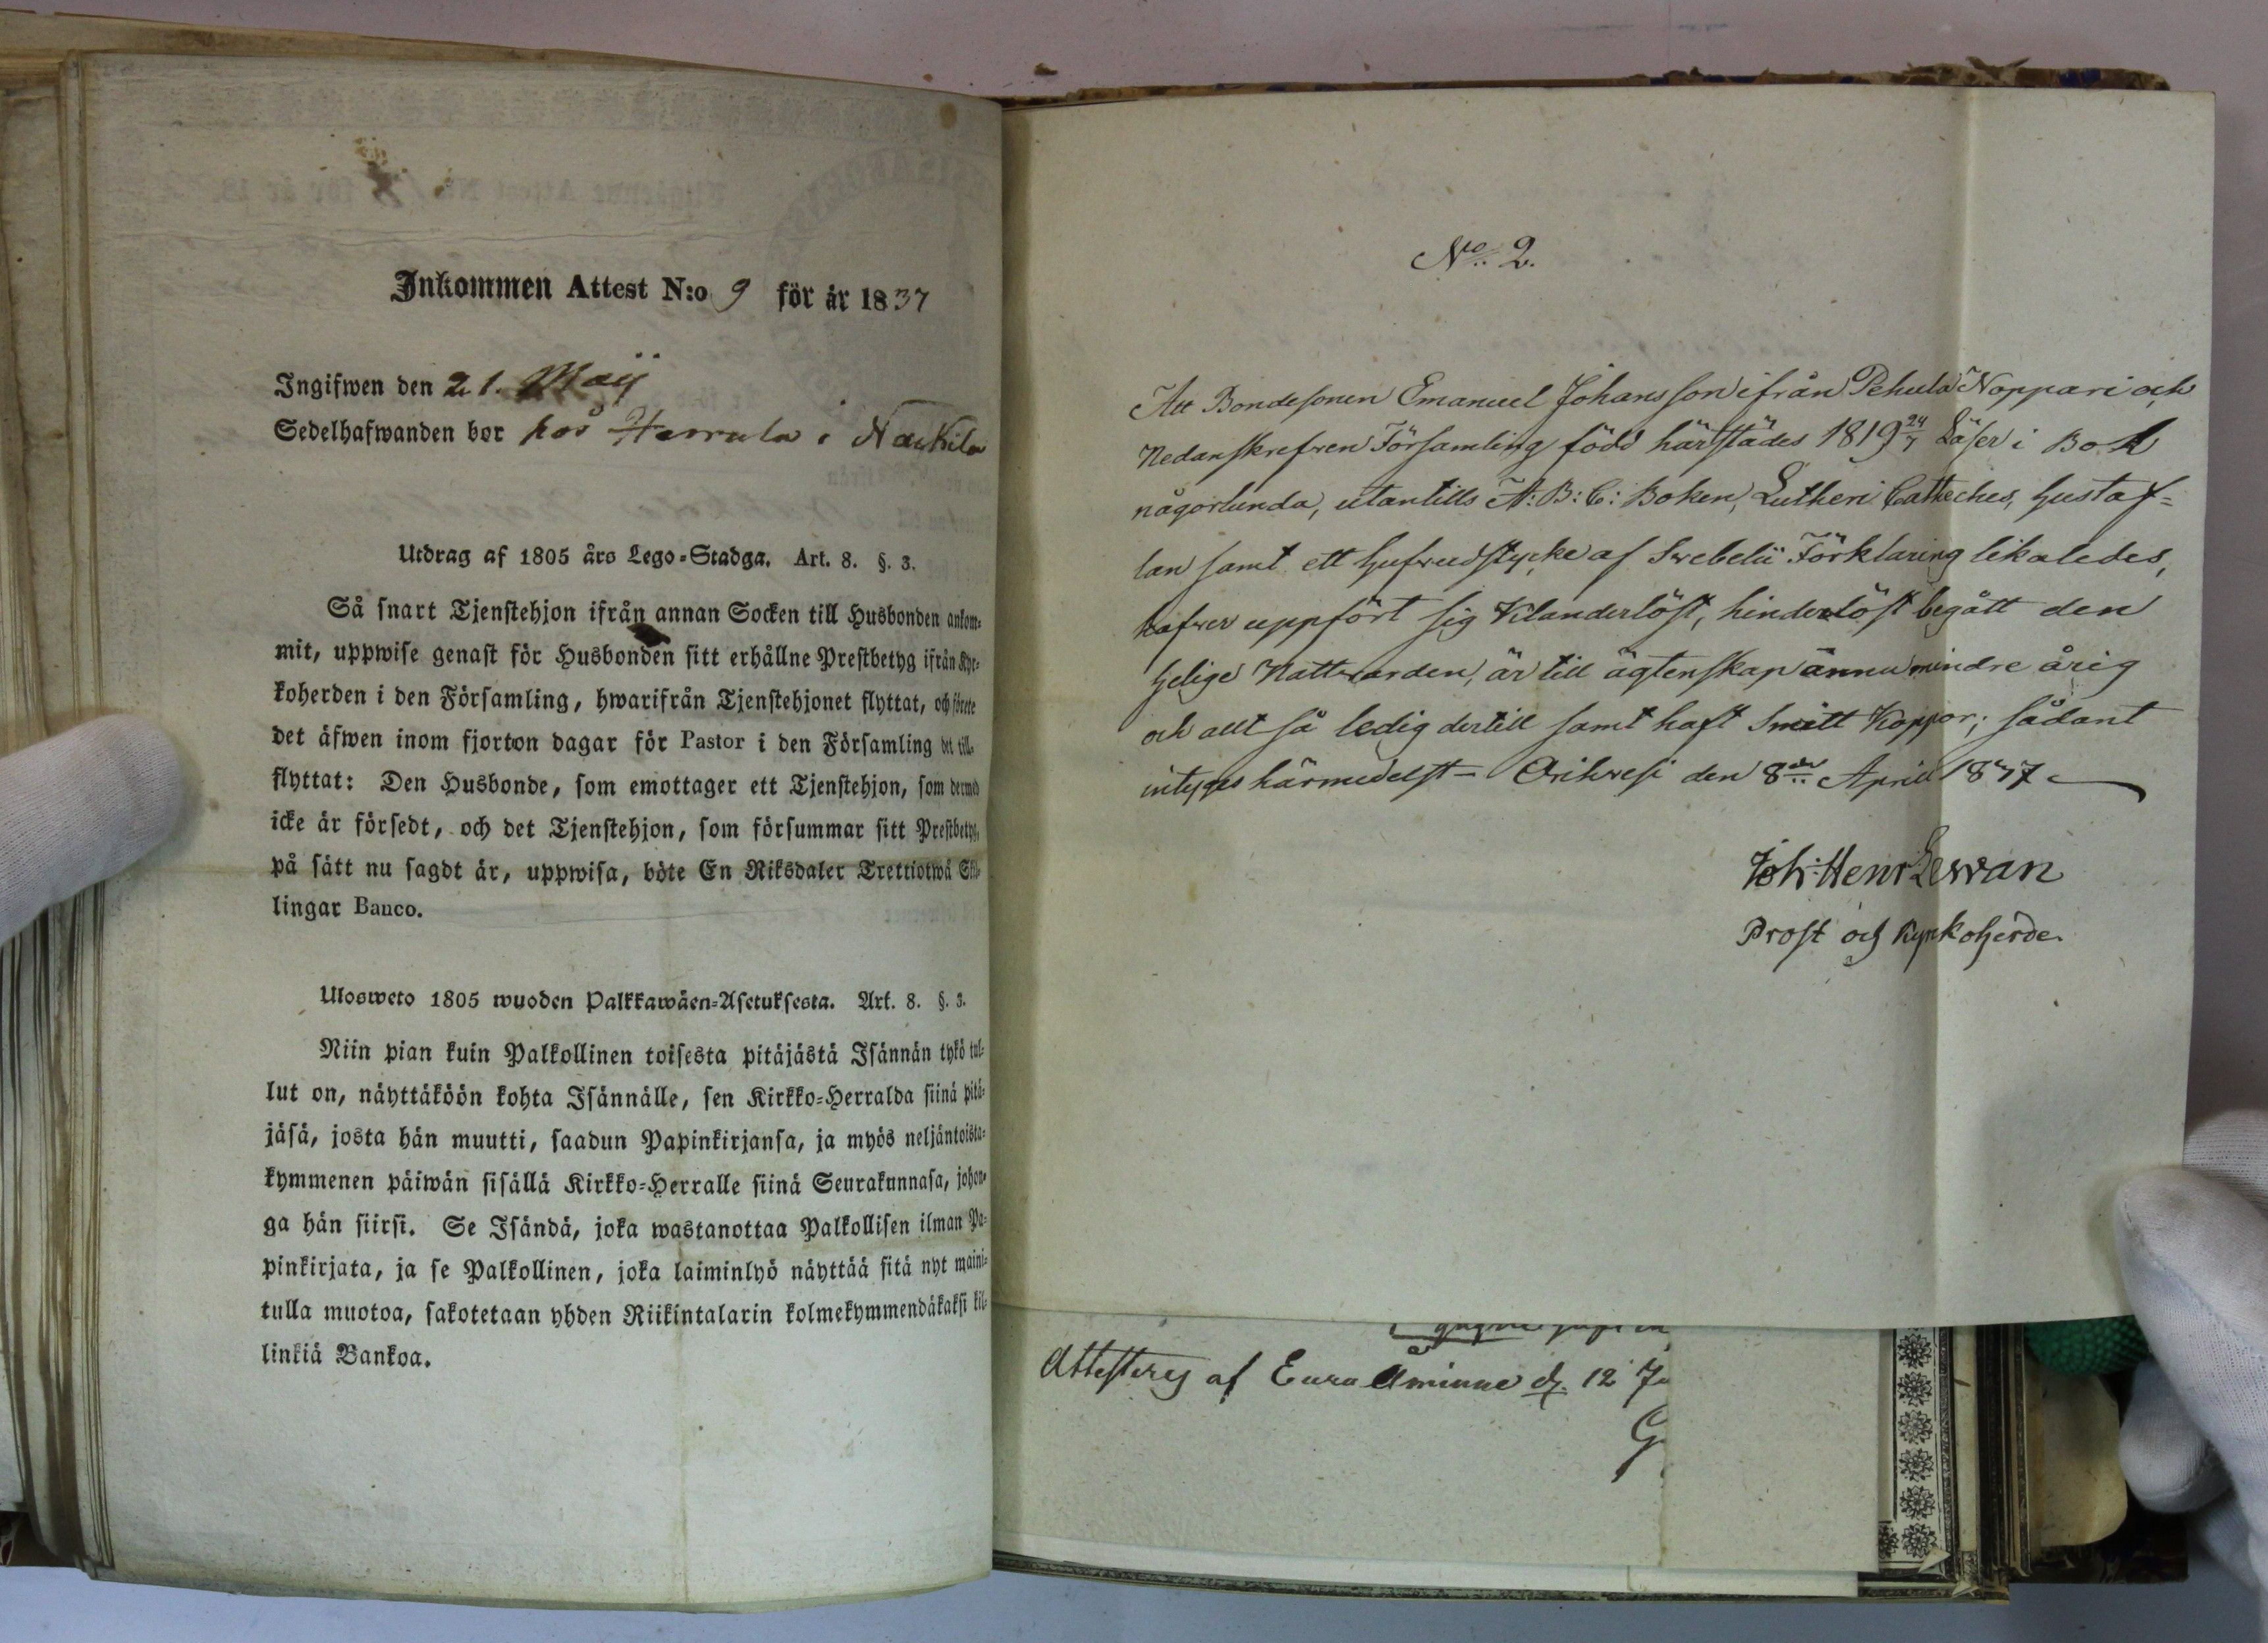 Inkommen Attest N:o 9 för år 1837
Ingifwen den 21. Maij
Sedelhafwanden bor hos Herrala i Nackila
Utdrag af 1805 års Lego-Stadga. Art. 8. §. 3.
Så snart Tjenstehjon ifrån annan Socken till Husbonden ankom-
mit, uppwise genast för Husbonden sitt erhållne Prestbetyg ifrån Kyr-
koherden i den Församling, hwarifrån Tjenstehjonet flyttat, och förete
det äfwen inom fjorton dagar för Pastor i den Församling det till-
flyttat: Den Husbonde, som emottager ett Tjenstehjon, som dermed
icke är försedt, och det Tjenstehjon, som försummar sitt Prestbetyg,
på sätt nu sagdt är, uppwisa, böte En Riksdaler Trettiotwå Skil-
lingar Banco.
Ulosweto 1805 wuoden Palkkawäen-Asetuksesta. Art. 8. §. 3.
Niin pian kuin Palkollinen toisesta pitäjästä Isännän tykö tul-
lut on, näyttäköön kohta Isännälle, sen Kirkko-Herralda siinä pitä-
jäsä, josta hän muutti, saadun Papinkirjansa, ja myös neljäntoista-
kymmenen päiwän sisällä Kirkko-Herralle siinä Seurakunnasa, johon-
ga hän siirsi. Se Isändä, joka wastanottaa Palkollisen ilman Pa-
pinkirjata, ja se Palkollinen, joka laiminlyö näyttää sitä nyt maini-
tulla muotoa, sakotetaan yhden Riikintalarin kolmekymmendäkaksi kil-
linkiä Bankoa.
No 2.
Att Bondesonen Emanuel Johansson ifrån Pehula Noppari och
Nedanskrefven Församling född härstädes 1819 24/7 Läser i Bok
någorlunda, utantills A: B: C: Boken, Lutheri Catheches, Hustaf-
lan samt ett Hufvudstycke af Svebelii Förklaring likaledes,
hafver uppfört sig Klanderlöst, hinderlöst begått den
Helige Nattvarden, är till ägtenskap ännu mindre årig
och allt så ledig dertill samt haft Smått Koppor; sådant
intygas härmedelst - Orihvesi den 8de April 1837
Joh: Henr Levan
Prost och Kyrkoherde.
Attesteras af Euraåminne d. 12 Ju
G